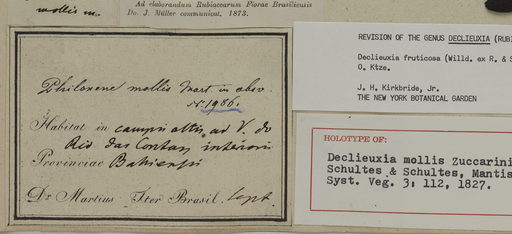 mollis m.
Ad elaborandum Rubiacearum Florae Brasiliensis
Do. J. Müller communicat. 1873.
mollis Mart in obsv
N. 1986.
Habitat in campis altis ad V. do
Rio das Contas interioris
Provinciae Bahiensis
Dr Martius Iter Brasil. Sept.
REVISION OF THE GENUS DECLIEUXIA (RUBI
Declieuxia fruticosa (Willd. ex R. & S
O. Ktze.
J. H. Kirkbride, Jr.
THE NEW YORK BOTANICAL GARDEN
HOLOTYPE OF:
Declieuxia mollis Zuccarini
Schultes & Schultes, Mantis
Syst. Veg. 3: 112, 1827.